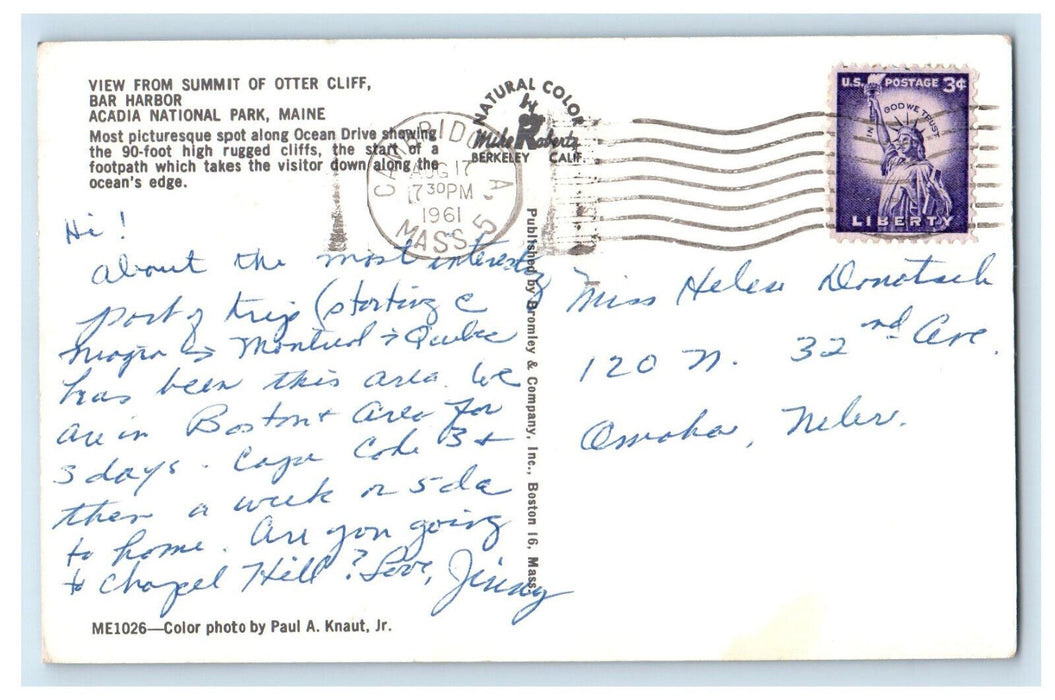 VIEW FROM SUMMIT OF OTTER CLIFF,
BAR HARBOR
ACADIA NATIONAL PARK, MAINE
Most picturesque spot along Ocean Drive showing
the 90-foot high rugged cliffs, the start of a
footpath which takes the visitor down along the
ocean's edge.
NATURAL COLOR
by
Mike Roberts
BERKELEY CALIF.
AUG 17
7 30 PM
1961
MASS. 5
U.S. POSTAGE 3¢
IN GOD WE TRUST
LIBERTY
Hi!
About the most interesting
part of trip (starting c
Niagra → Montreal → Quebec
has been this area. We
are in Boston + area for
3 days. Cape Code 3 +
then a week or 5 da
to home. Are you going
to Chapel Hill? Love, Jinny
Published by Bromley & Company, Inc., Boston 16, Mass.
Miss Helen
120 N. 32nd Ave.
Omaha, Nebr.
ME1026—Color photo by Paul A. Knaut, Jr.